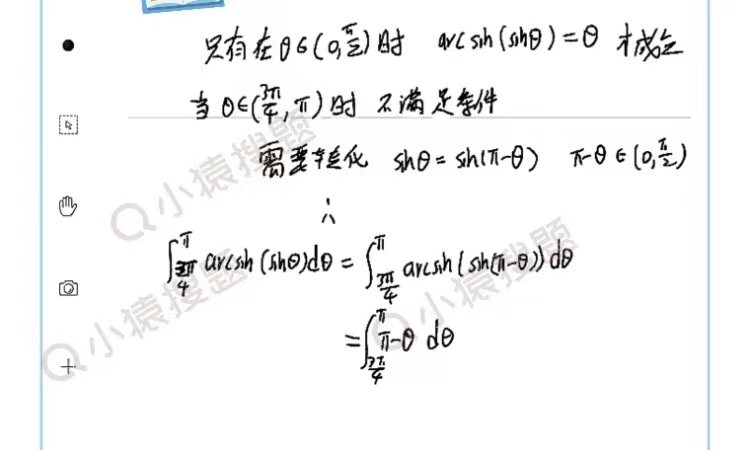 只有在θ∈(0,π/2)时 arcsin(sinθ)=θ 才成立
当θ∈(3π/4,π)时 不满足条件
需要转化 sinθ=sin(π-θ) π-θ∈(0,π/2)
∴
∫_{3π/4}^{π} arcsin(sinθ)dθ = ∫_{3π/4}^{π} arcsin(sin(π-θ))dθ
= ∫_{3π/4}^{π} π-θ dθ
小猿搜题
小猿搜题
小猿搜题